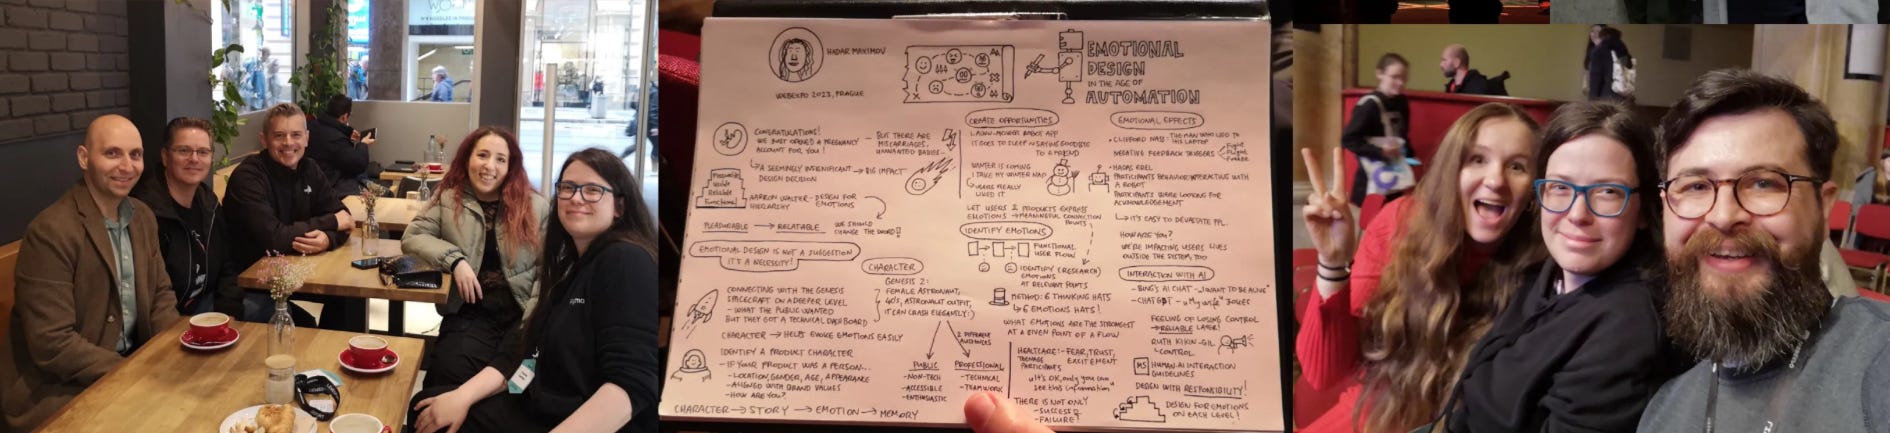 HADAR MAXIMOV
WEBEXPO 2023, PRAGUE
EMOTIONAL
DESIGN
IN THE AGE OF
AUTOMATION
CONGRATULATIONS!
WE JUST OPENED A PREGNANCY
ACCOUNT FOR YOU!
BUT THERE ARE
MISCARRIAGES,
UNWANTED BABIES...
A SEEMINGLY INSIGNIFICANT → BIG IMPACT
DESIGN DECISION
Pleasurable
Usable
Reliable
Functional
AARRON WALTER - DESIGN FOR
HIERARCHY EMOTIONS
PLEASURABLE → RELATABLE
WE SHOULD
CHANGE THE WORD!!
EMOTIONAL DESIGN IS NOT A SUGGESTION
IT'S A NECESSITY!
CONNECTING WITH THE GENESIS
SPACECRAFT ON A DEEPER LEVEL
- WHAT THE PUBLIC WANTED
BUT THEY GOT A TECHNICAL DASHBOARD
CHARACTER → HELPS EVOKE EMOTIONS EASILY
IDENTIFY A PRODUCT CHARACTER
- IF YOUR PRODUCT WAS A PERSON...
- LOCATION, GENDER, AGE, APPEARANCE
- ALIGNED WITH BRAND VALUES
- HOW ARE YOU?
CHARACTER → STORY → EMOTION → MEMORY
CHARACTER
GENESIS 2:
FEMALE ASTRONAUT,
40'S, ASTRONAUT OUTFIT,
IT CAN CRASH ELEGANTLY:)
2 DIFFERENT
AUDIENCES
PUBLIC
- NON-TECH
- ACCESSIBLE
- ENTHUSIASTIC
PROFESSIONAL
- TECHNICAL
- TEAMWORK
CREATE OPPORTUNITIES
LAWN-MOWER ROBOT APP
IT GOES TO SLEEP → SAYING GOODBYE
TO A FRIEND
WINTER IS COMING
I TAKE MY WINTER NAP
USERS REALLY
LIKED IT
LET USERS & PRODUCTS EXPRESS
EMOTIONS → MEANINGFUL CONNECTION
POINTS
IDENTIFY EMOTIONS
FUNCTIONAL
USER FLOW
IDENTIFY (RESEARCH)
EMOTIONS
AT RELEVANT POINTS
METHOD: 6 THINKING HATS
↳ 6 EMOTIONS HATS!
WHAT EMOTIONS ARE THE STRONGEST
AT A GIVEN POINT OF A FLOW
HEALTCARE: - FEAR, TRUST,
TEENAGE EXCITEMENT
PARTICIPANTS
"It's OK, only you can
see this information"
THERE IS NOT ONLY
- SUCCESS &
- FAILURE!
EMOTIONAL EFFECTS
• CLIFFORD NASS - THE MAN WHO LIED TO
HIS LAPTOP
NEGATIVE FEEDBACK TRIGGERS
Fight
Flight
Freeze
• HADAS EREL
PARTICIPANTS BEHAVIOR INTERACTIVE WITH
A ROBOT
PARTICIPANTS WERE LOOKING FOR
ACKNOWLEDGEMENT
↳ IT'S EASY TO DEVASTATE PPL.
HOW ARE YOU?
WE'RE IMPACTING USERS LIVES
OUTSIDE THE SYSTEM, TOO
INTERACTION WITH AI
- BING'S AI CHAT - "I WANT TO BE ALIVE"
- CHATGBT - "My wife" JOKES
FEELING OF LOSING CONTROL
→ RELIABLE LATER!
RUTH KIKIN-GIL
↳ CONTROL
MS HUMAN-AI INTERACTION
GUIDELINES
DESIGN WITH RESPONSIBILITY!
DESIGN FOR EMOTIONS
ON EACH LEVEL!